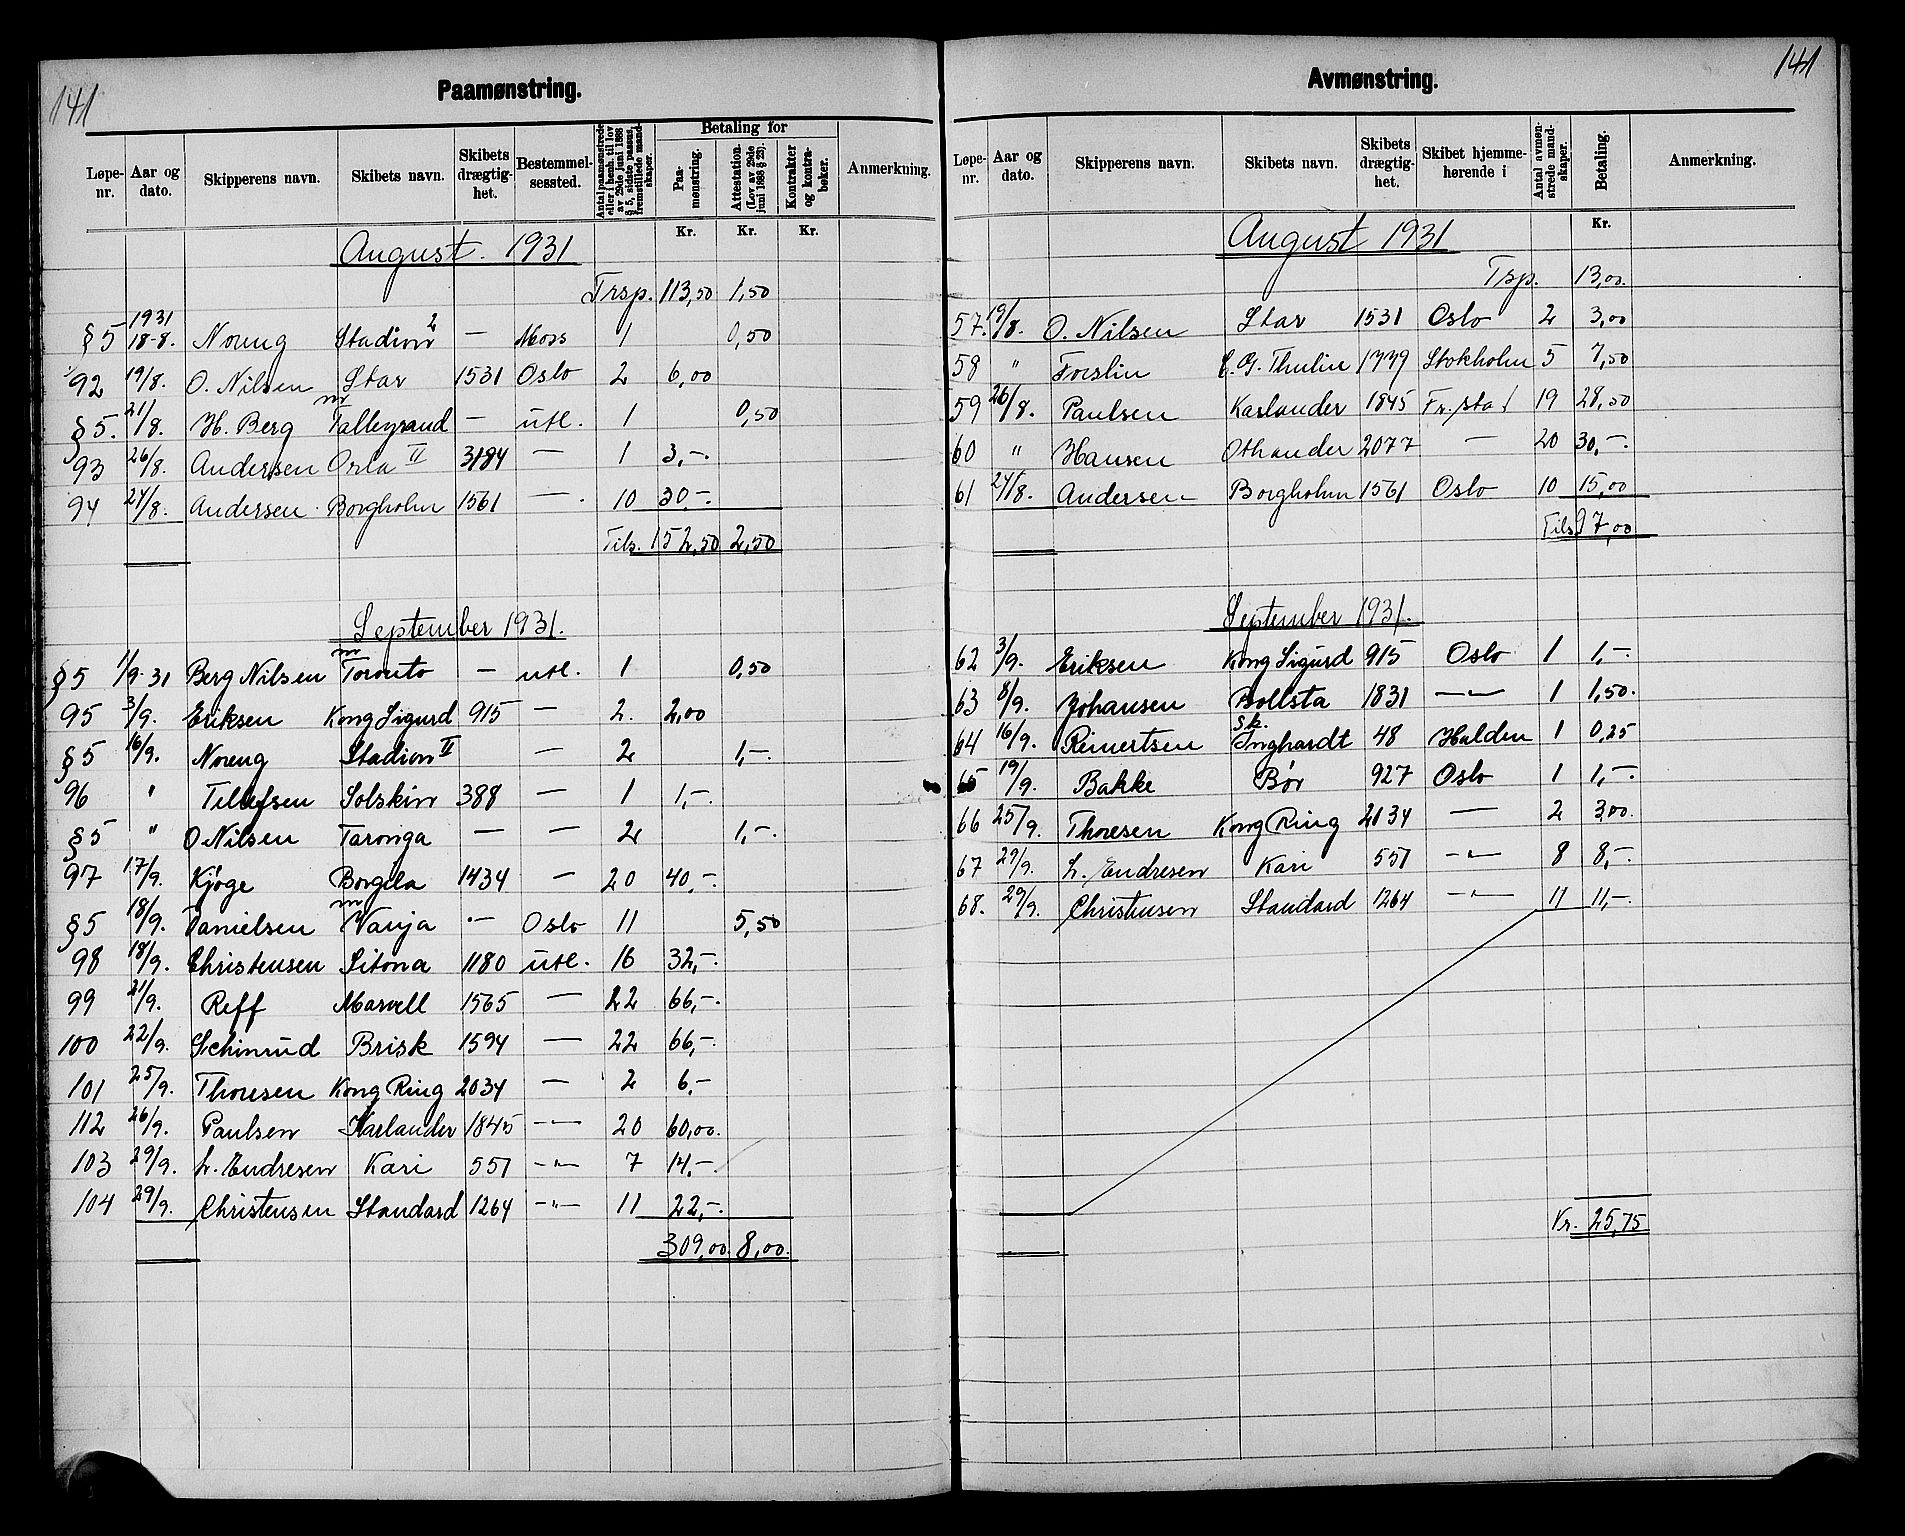 141
Paamønstring.
Løpe-nr. | Aar og dato. | Skipperens navn. | Skibets navn. | Skibets drægtig-het. | Bestemmel-sessted. | Antal paamønstrede eller i henh. til lov av 29de juni 1888 § 5, sidste passus, fremstillede mand-skaper. | Betaling for | Paa-mønstring. | Attestation. (Lov av 29de juni 1888 § 23). | Kontrakter og kontra-bøker. | Anmerkning.
Kr. | Kr. | Kr.
August. 1931
Trsp. 113,50 1,50
1931
§5 18-8. Noreng Stadion 2 — Moss 1 0,50
92 19/8. O. Nilsen Star 1531 Oslo 2 6,00
§5. 21/8. H. Berg m Talleyrand — utl. 1 0,50
93 26/8. Andersen Orla II 3184 — 1 3,-.
94 27/8. Andersen Borgholm 1561 —. 10 30-.
Tils. 152,50 2,50
September 1931.
§5 1/9-31 Berg Nilsen m Toronto — utl. 1 0,50
95 3/9. Eriksen Kong Sigurd 915 — 2. 2,00
§5 16/9. Noreng Stadion II — 2 1,-.
96 " Tellefsen Solskin 388 — 1 1,-.
§5 " O Nilsen Taronga — — 2 1,-.
97 17/9. Kjøge Borgila 1434 — 20 40,-.
§5 18/9. Danielsen m Vanja — Oslo 11 5,50
98 18/9. Christensen Sitona 1180 utl. 16 32,-.
99 21/9. Reff Marvell 1565 — 22 66,-.
100 22/9. Schinrud Brisk 1594 — 22 66,-.
101 25/9. Thoresen Kong Ring 2034 — 2 6,-
112 26/9. Paulsen Karlander 1845 -"- 20 60,00.
103 29/9. L. Endresen Kari 551 -"- 7 14,-.
104 29/9. Christensen Standard 1264 -"- 11 22,-.
309,00 8,00.
141
Avmønstring.
Løpe-nr. | Aar og dato. | Skipperens navn. | Skibets navn. | Skibets drægtig-het. | Skibet hjemme-hørende i | Antal avmøn-strede mand-skaper. | Betaling. | Anmerkning.
Kr.
August 1931
Tsp. 13,00
57. 19/8. O. Nilsen Star 1531 Oslo 2 3,00
58 " Forslin C. G. Thulin 1779 Stokholm 5 7,50
59 26/8. Paulsen Karlander 1845 Fr.stad 19 28,50
60 " Hansen Othander 2077 — 20 30,-.
61 27/8. Andersen Borgholm 1561 Oslo 10 15,00
Tils. 97,00
September 1931.
62 3/9. Eriksen Kong Sigurd 915 Oslo 1 1,-.
63 8/9. Johansen Bollsta 1831 -"- 1 1,50.
64 16/9. Reinertsen sk. Inghardt 48 Halden 1 0,25
65 19/9. Bakke Bør 927 Oslo 1 1,-.
66 25/9. Thoresen Kong Ring 2134 — 2 3,00.
67 29/9. L. Endresen Kari 551 -"- 8 8,-.
68. 29/9. Christensen Standard 1264 -"- 11 11,-.
Kr. 25,75